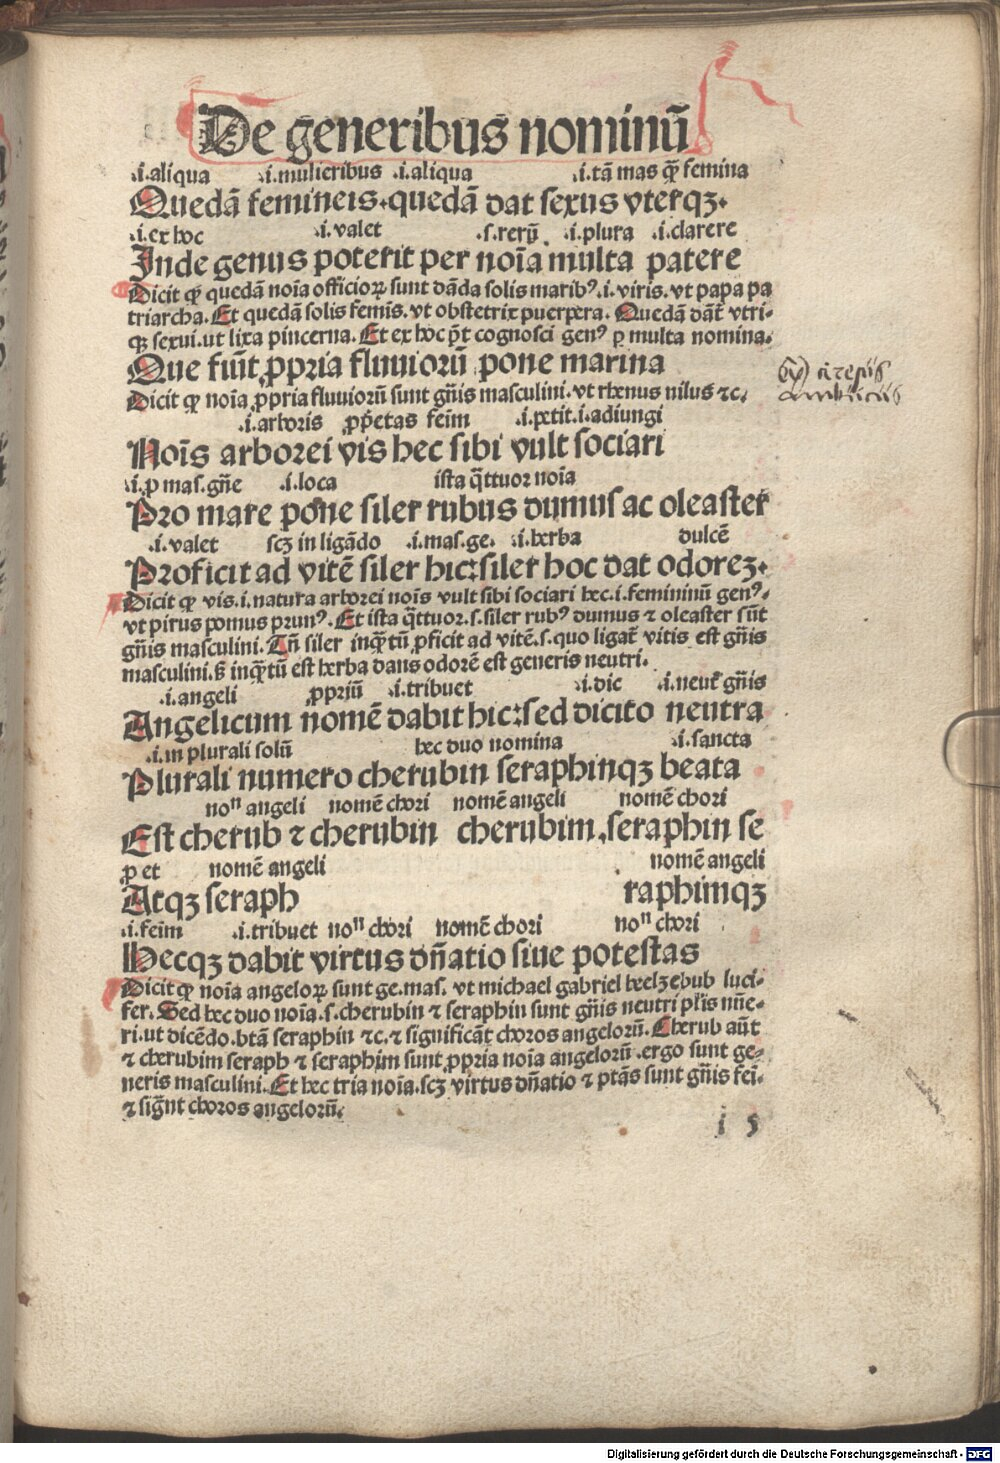 De generibus nominū
.i.aliqua .i.mulieribus .i.aliqua .i.tā mas q̄ȝ femina
Quedā femineis.quedā dat sexus vterqȝ.
.i.ex hoc .i.valet .s.rerū .i.plura .i.clarere
Inde genus poterit per noīa multa patere
Dicit qͥ quedā noīa officioꝝ sunt dāda solis maribꝰ.i.viris.vt papa pa
triarcha.Et quedā solis femīs.vt obstetrix puerpera. Quedā dāt̄ vtri-
qꝫ sexui.ut lixa pincerna.Et ex hoc pn̄t cognosci genꝰ ꝑ multa nomina.
Que fuīt ꝓpria fluuiorū pone marina
Dicit qͥ noīa ꝓpria fluuiorū sunt gn̄is masculini.vt rhenus nilus ⁊c.
.i.arboris ꝓp̄etas feīm .i.petit.i.adiungi
Noīs arborei vis hec sibi vult sociari
.i.ꝓ mas.gn̄e .i.loca ista q̄ttuor noīa
Pro mare pone siler rubus dumus ac oleaster
.i.valet scȝ in ligādo .i.mas.ge. .i.herba dulcē
Proficit ad vitē siler hic:siler hoc dat odoreȝ.
Dicit qͥ vis.i.natura arborei noīs vult sibi sociari hec.i.femininū genꝰ.
vt pirus pomus prunꝰ.Et ista q̄ttuor.s.siler rubꝰ dumus ⁊ oleaster sūt
gn̄is masculini.Tn̄ siler inq̄ȝtū ꝓficit ad vitē.s.quo ligat̄ vitis est gn̄is
masculini.sꝫ inq̄ȝtū est herba dans odorē est generis neutri.
.i.angeli ꝓpriū .i.tribuet .i.dic .i.neut̄ gn̄is
Angelicum nomē dabit hic:sed dicito neutra
.i.in plurali solū hec duo nomina .i.sancta
Plurali numero cherubin seraphinqȝ beata
noⁿ angeli nomē chori nomē angeli nomē chori
Est cherub ⁊ cherubin cherubim.seraphin se
ꝓ et nomē angeli nomē angeli
Atqȝ seraph raphimqȝ
.i.feīm .i.tribuet noⁿ chori nomē chori noⁿ chori
Hecqȝ dabit virtus dn̄atio siue potestas
Dicit qͥ noīa angeloꝝ sunt ge.mas. vt michael gabriel beelzebub luci-
fer.Sed hec duo noīa.s.cherubin ⁊ seraphin sunt gn̄is neutri pl̄is nūe-
ri.ut dicēdo.btā seraphin ⁊c.⁊ significāt choros angelorū.Cherub aūt
⁊ cherubim seraph ⁊ seraphim sunt ꝓpria noīa angelorū.ergo sunt ge-
neris masculini.Et hec tria noīa.scȝ virtus dn̄atio ⁊ ptās sunt gn̄is feī.
⁊ sign̄t choros angelorū.
i 5
Digitalisierung gefördert durch die Deutsche Forschungsgemeinschaft - DFG